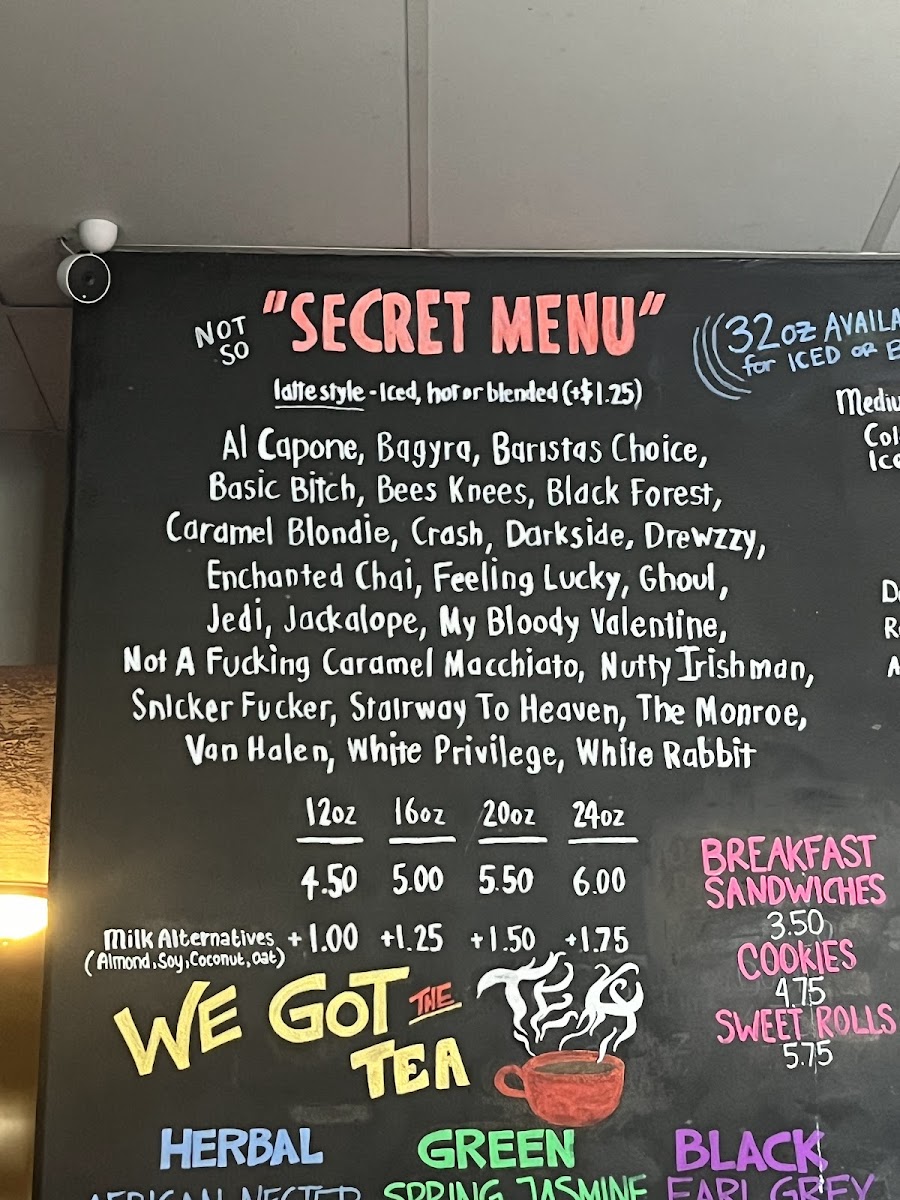 NOT SO "SECRET MENU"
latte style - Iced, hot or blended (+$1.25)
Al Capone, Bagyra, Baristas Choice,
Basic Bitch, Bees Knees, Black Forest,
Caramel Blondie, Crash, Darkside, Drewzzy,
Enchanted Chai, Feeling Lucky, Ghoul,
Jedi, Jackalope, My Bloody Valentine,
Not A Fucking Caramel Macchiato, Nutty Irishman,
Snicker Fucker, Stairway To Heaven, The Monroe,
Van Halen, White Privilege, White Rabbit
12oz 16oz 20oz 24oz
4.50 5.00 5.50 6.00
Milk Alternatives +1.00 +1.25 +1.50 +1.75
(Almond, Soy, Coconut, Oat)
32oz
for ICED OR
BREAKFAST
SANDWICHES
3.50
COOKIES
4.75
SWEET ROLLS
5.75
WE GOT THE
TEA
TEA
HERBAL GREEN BLACK
AFRICAN NECTER SPRING JASMINE EARL GREY